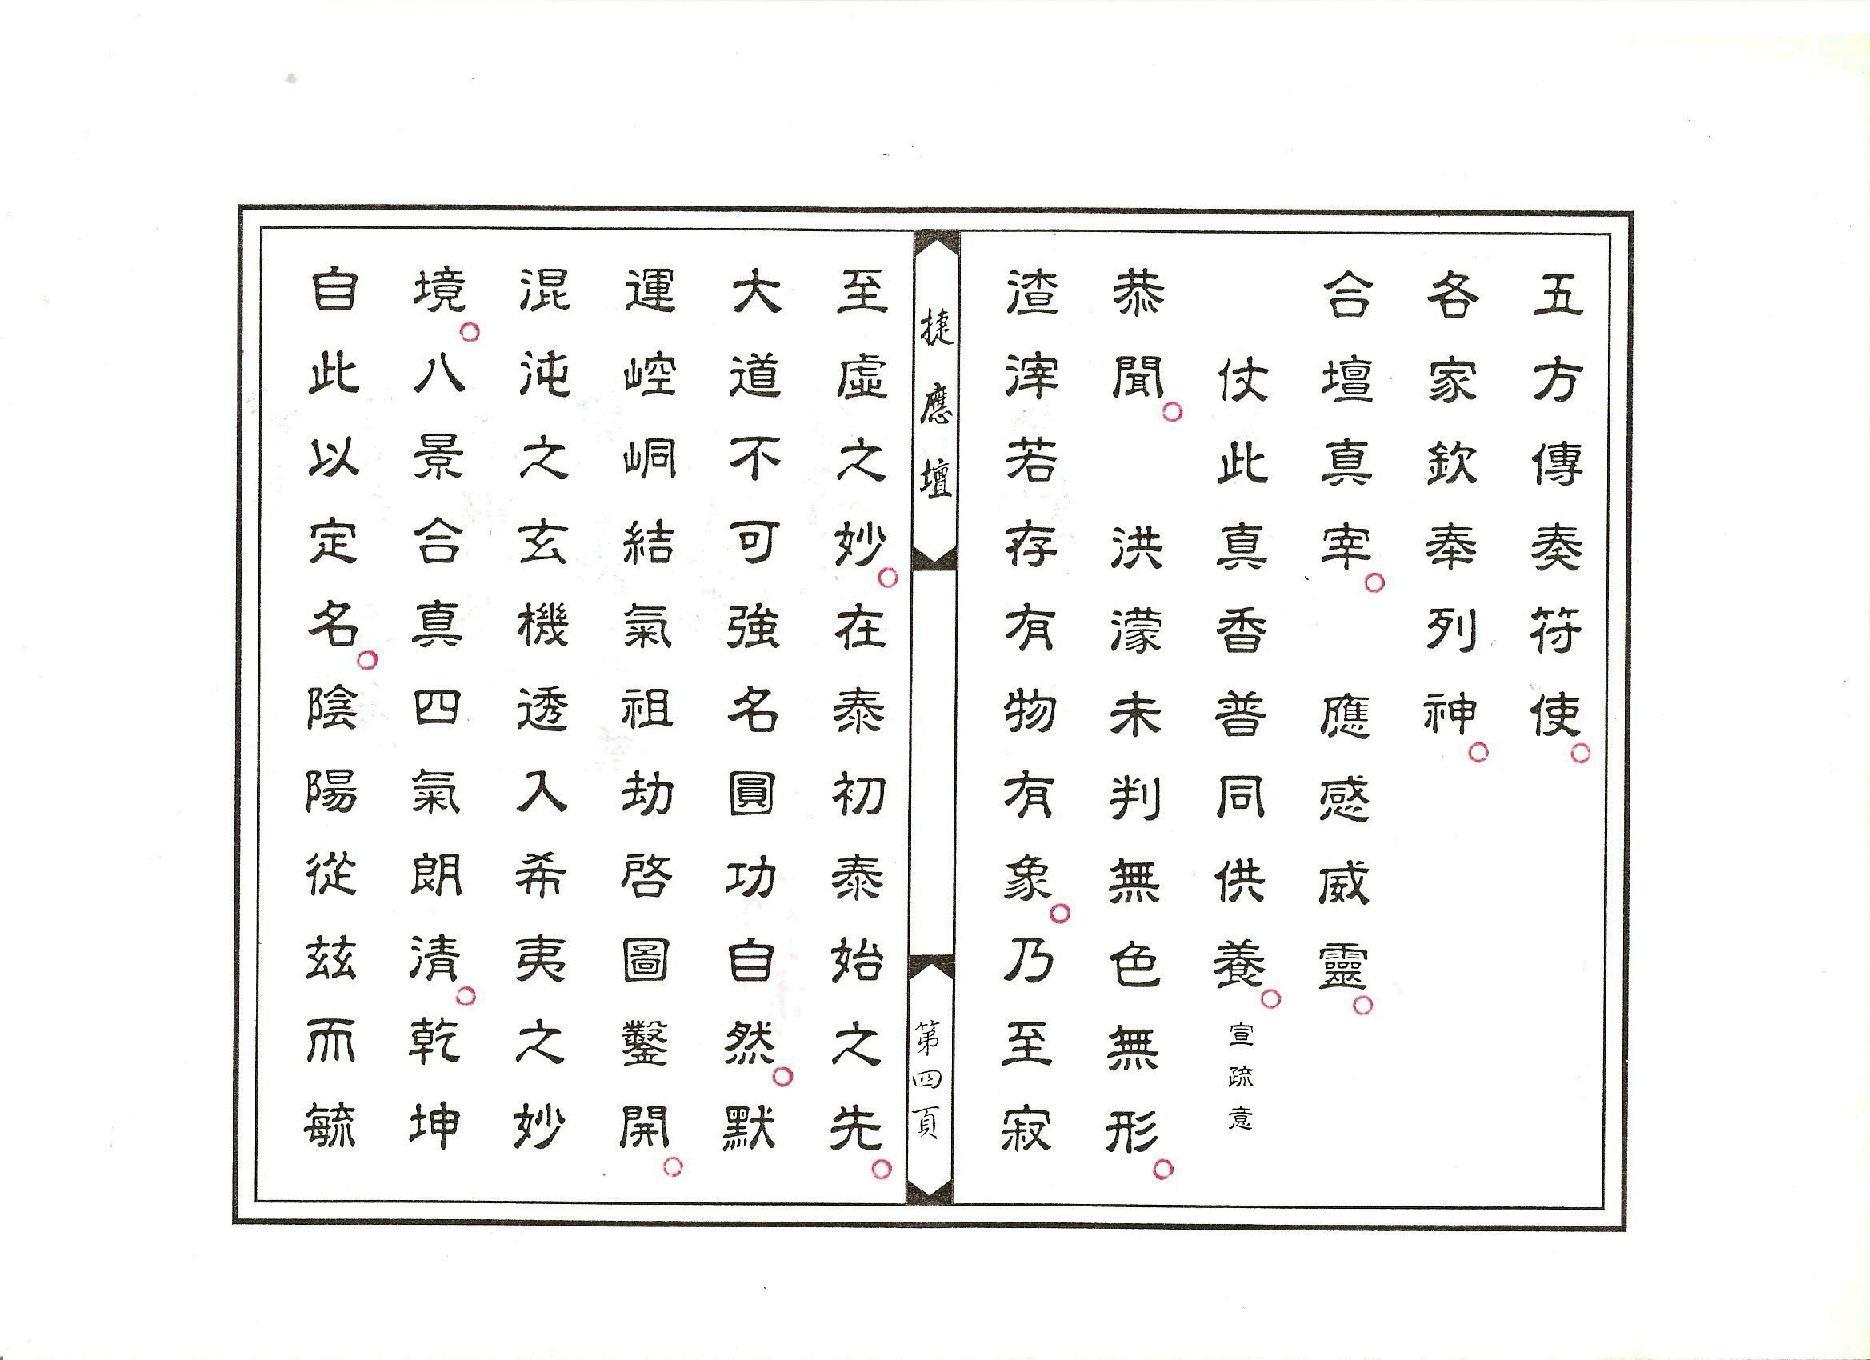 五方傳奏符使○
各家欽奉列神○
合壇真宰○　應感威靈○
仗此真香普同供養○宣疏意
恭聞○　洪濛未判無色無形○
渣滓若存有物有象○乃至寂
捷應壇
第四頁
至虛之妙○在泰初泰始之先○
大道不可強名圓功自然○默
運崆峒結氣祖劫啓圖鑿開○
混沌之玄機透入希夷之妙
境○八景合真四氣朗清○乾坤
自此以定名○陰陽從茲而毓